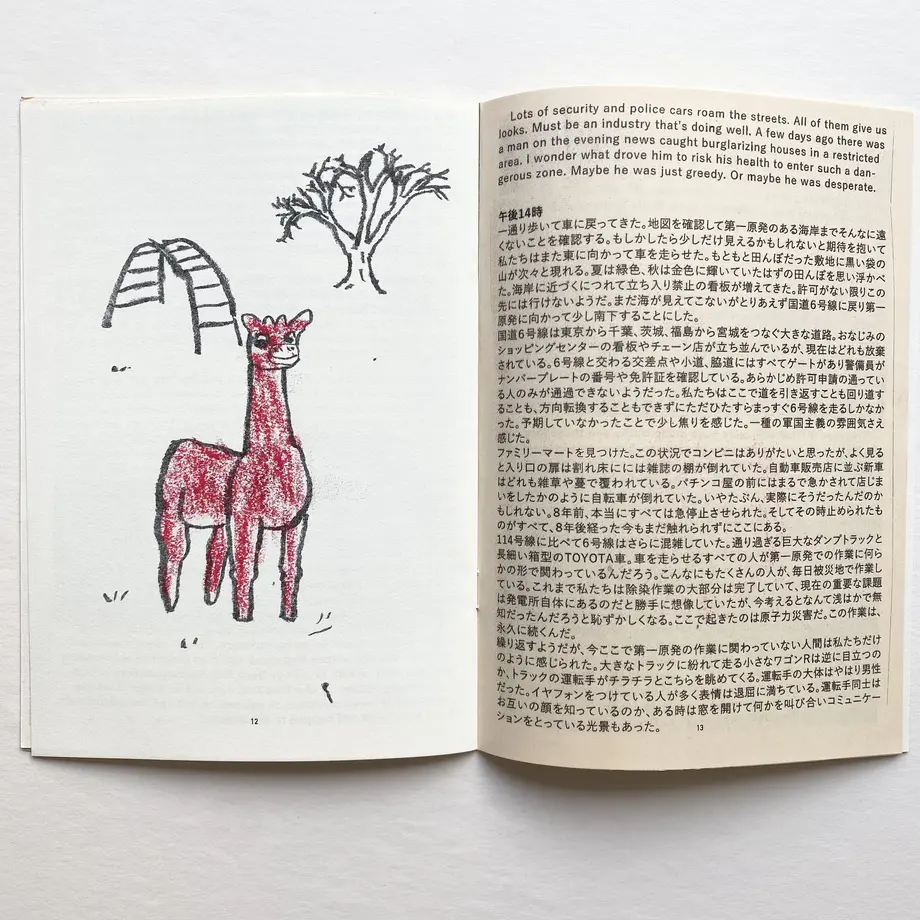 12
Lots of security and police cars roam the streets. All of them give us
looks. Must be an industry that's doing well. A few days ago there was
a man on the evening news caught burglarizing houses in a restricted
area. I wonder what drove him to risk his health to enter such a dan-
gerous zone. Maybe he was just greedy. Or maybe he was desperate.
午後14時
一通り歩いて車に戻ってきた。地図を確認して第一原発のある海岸までそんなに遠
くないことを確認する。もしかしたら少しだけ見えるかもしれないと期待を抱いて
私たちはまた東に向かって車を走らせた。もともと田んぼだった敷地に黒い袋の
山が次々と現れる。夏は緑色、秋は金色に輝いていたはずの田んぼを思い浮かべ
た。海岸に近づくにつれて立ち入り禁止の看板が増えてきた。許可がない限りこの
先には行けないようだ。まだ海が見えてこないがとりあえず国道6号線に戻り第一
原発に向かって少し南下することにした。
国道6号線は東京から千葉、茨城、福島から宮城をつなぐ大きな道路。おなじみの
ショッピングセンターの看板やチェーン店が立ち並んでいるが、現在はどれも放棄
されている。6号線と交わる交差点や小道、脇道にはすべてゲートがあり警備員が
ナンバープレートの番号や免許証を確認している。あらかじめ許可申請の通ってい
る人のみが通過できないようだった。私たちはここで道を引き返すことも回り道す
ることも、方向転換することもできずにただひたすらまっすぐ6号線を走るしかなか
った。予期していなかったことで少し焦りを感じた。一種の軍国主義の雰囲気さえ
感じた。
ファミリーマートを見つけた。この状況でコンビニはありがたいと思ったが、よく見る
と入り口の扉は割れ床にには雑誌の棚が倒れていた。自動車販売店に並ぶ新車
はどれも雑草や蔓で覆われている。パチンコ屋の前にはまるで急かされて店じま
いをしたかのように自転車が倒れていた。いやたぶん、実際にそうだったんだのか
もしれない。8年前、本当にすべては急停止させられた。そしてその時止められたも
のがすべて、8年後経った今もまだ触れられずにここにある。
114号線に比べて6号線はさらに混雑していた。通り過ぎる巨大なダンプトラックと
長細い箱型のTOYOTA車。車を走らせるすべての人が第一原発での作業に何ら
かの形で関わっているんだろう。こんなにもたくさんの人が、毎日被災地で作業し
ている。これまで私たちは除染作業の大部分は完了していて、現在の重要な課題
は発電所自体にあるのだと勝手に想像していたが、今考えるとなんて浅はかで無
知だったんだろうと恥ずかしくなる。ここで起きたのは原子力災害だ。この作業は、
永久に続くんだ。
繰り返すようだが、今ここで第一原発の作業に関わっていない人間は私たちだけ
のように感じられた。大きなトラックに紛れて走る小さなワゴンRは逆に目立つの
か、トラックの運転手がチラチラとこちらを眺めてくる。運転手の大体はやはり男性
だった。イヤフォンをつけている人が多く表情は退屈に満ちている。運転手同士は
お互いの顔を知っているのか、ある時は窓を開けて何かを叫び合いコミュニケー
ションをとっている光景もあった。
13